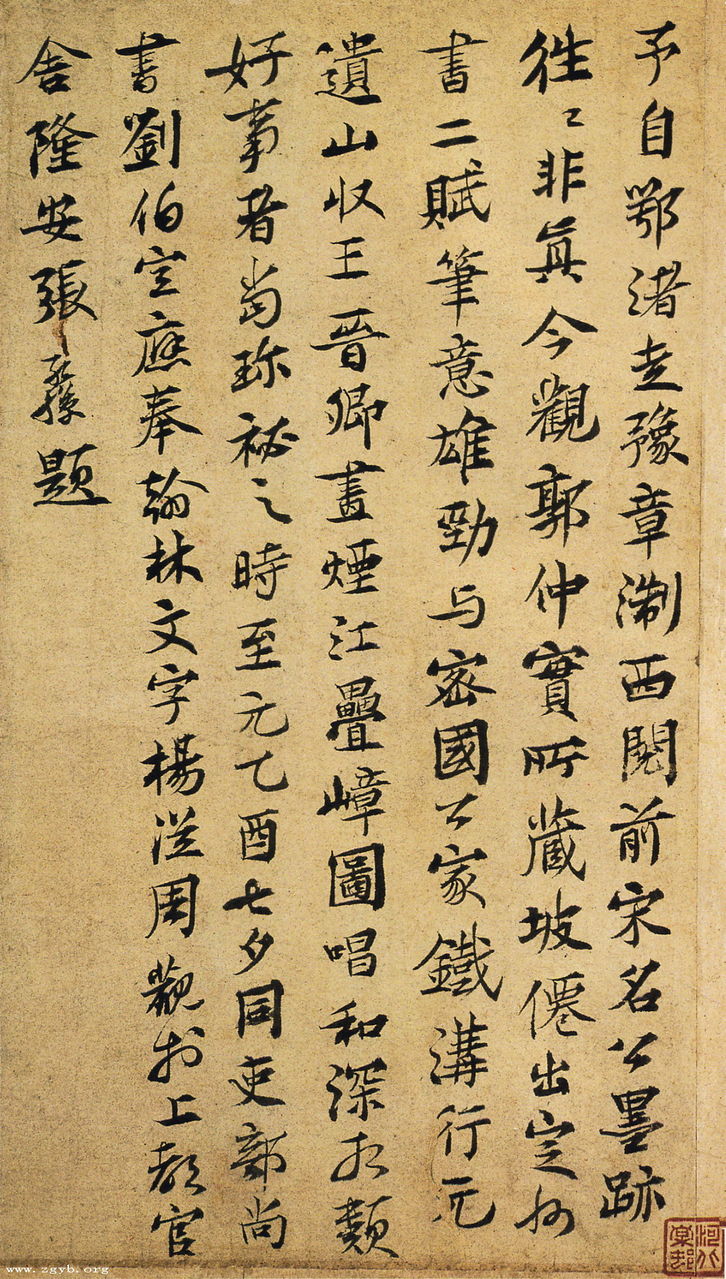 予自鄂渚走豫章淛西閱前宋名公墨跡
往〻非真今觀郭仲實所藏坡僊出定州
書二賦筆意雄勁与密國公家鐵溝行元
遺山收王晉卿畫煙江疊嶂圖唱和深相類
好事者當珎祕之時至元乙酉七夕同吏部尚
書劉伯宣應奉翰林文字楊從周觀於上都官
舍隆安張孫題
www.zgyb.org